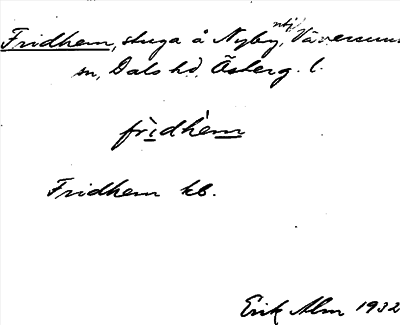 Fridhem, stuga å Nyby, ntj Väversunda
sn, Dals hd, Österg. l.
fridhem
Fridhem kb.
Erik Alm 1932